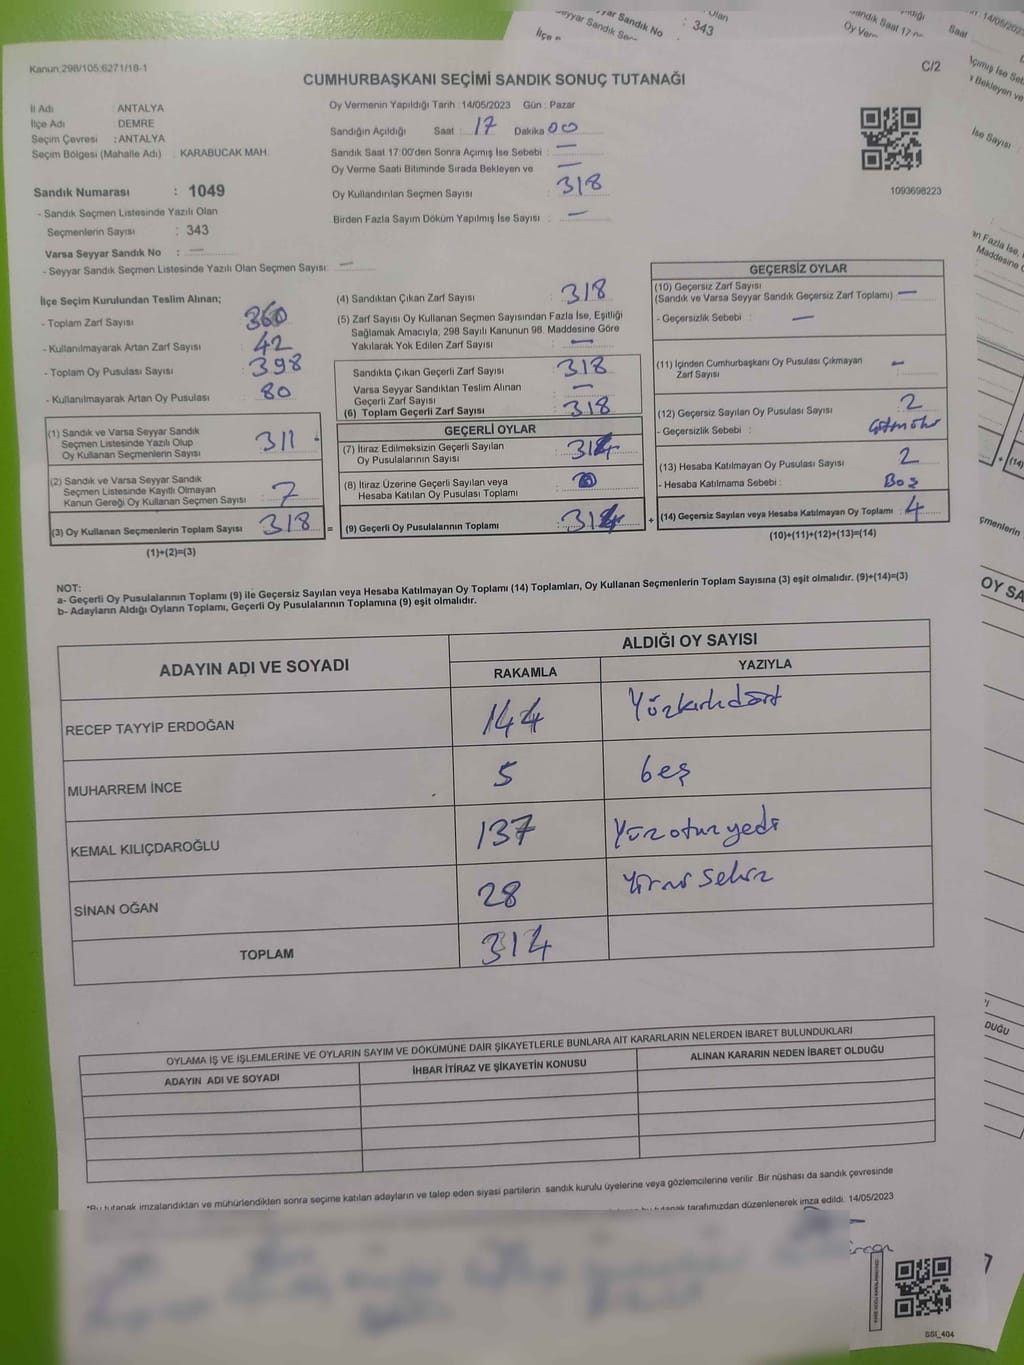 Kanun:298/105;6271/18-1
C/2
CUMHURBAŞKANI SEÇİMİ SANDIK SONUÇ TUTANAĞI
İl Adı ANTALYA
İlçe Adı DEMRE
Seçim Çevresi : ANTALYA
Seçim Bölgesi (Mahalle Adı) : KARABUCAK MAH.
Oy Vermenin Yapıldığı Tarih :14/05/2023 Gün : Pazar
Sandığın Açıldığı Saat : 17 Dakika 00
Sandık Saat 17:00'den Sonra Açımış İse Sebebi : —
Oy Verme Saati Bitiminde Sırada Bekleyen ve —
Oy Kullandırılan Seçmen Sayısı : 318
Birden Fazla Sayım Döküm Yapılmış İse Sayısı : —
1093698223
Sandık Numarası : 1049
- Sandık Seçmen Listesinde Yazılı Olan
Seçmenlerin Sayısı : 343
Varsa Seyyar Sandık No : —
- Seyyar Sandık Seçmen Listesinde Yazılı Olan Seçmen Sayısı: —
İlçe Seçim Kurulundan Teslim Alınan;
- Toplam Zarf Sayısı 360
- Kullanılmayarak Artan Zarf Sayısı 42
- Toplam Oy Pusulası Sayısı 398
- Kullanılmayarak Artan Oy Pusulası 80
(1) Sandık ve Varsa Seyyar Sandık
Seçmen Listesinde Yazılı Olup
Oy Kullanan Seçmenlerin Sayısı : 311
(2) Sandık ve Varsa Seyyar Sandık
Seçmen Listesinde Kayıtlı Olmayan
Kanun Gereği Oy Kullanan Seçmen Sayısı : 7
(3) Oy Kullanan Seçmenlerin Toplam Sayısı : 318
(1)+(2)=(3)
(4) Sandıktan Çıkan Zarf Sayısı : 318
(5) Zarf Sayısı Oy Kullanan Seçmen Sayısından Fazla İse, Eşitliği
Sağlamak Amacıyla; 298 Sayılı Kanunun 98. Maddesine Göre
Yakılarak Yok Edilen Zarf Sayısı : —
Sandıkta Çıkan Geçerli Zarf Sayısı : 318
Varsa Seyyar Sandıktan Teslim Alınan
Geçerli Zarf Sayısı : —
(6) Toplam Geçerli Zarf Sayısı : 318
=
GEÇERLİ OYLAR
(7) İtiraz Edilmeksizin Geçerli Sayılan
Oy Pusulalarının Sayısı : 314
(8) İtiraz Üzerine Geçerli Sayılan veya
Hesaba Katılan Oy Pusulası Toplamı : 0
(9) Geçerli Oy Pusulalarının Toplamı : 314
+
GEÇERSİZ OYLAR
(10) Geçersiz Zarf Sayısı
(Sandık ve Varsa Seyyar Sandık Geçersiz Zarf Toplamı) : —
- Geçersizlik Sebebi : —
(11) İçinden Cumhurbaşkanı Oy Pusulası Çıkmayan
Zarf Sayısı : —
(12) Geçersiz Sayılan Oy Pusulası Sayısı : 2
- Geçersizlik Sebebi :
(13) Hesaba Katılmayan Oy Pusulası Sayısı : 2
- Hesaba Katılmama Sebebi : Boş
(14) Geçersiz Sayılan veya Hesaba Katılmayan Oy Toplamı : 4
(10)+(11)+(12)+(13)=(14)
NOT:
a- Geçerli Oy Pusulalarının Toplamı (9) ile Geçersiz Sayılan veya Hesaba Katılmayan Oy Toplamı (14) Toplamları, Oy Kullanan Seçmenlerin Toplam Sayısına (3) eşit olmalıdır. (9)+(14)=(3)
b- Adayların Aldığı Oyların Toplamı, Geçerli Oy Pusulalarının Toplamına (9) eşit olmalıdır.
ADAYIN ADI VE SOYADI
ALDIĞI OY SAYISI
RAKAMLA
YAZIYLA
RECEP TAYYİP ERDOĞAN 144 Yüzkırkdört
MUHARREM İNCE 5 beş
KEMAL KILIÇDAROĞLU 137 Yüzotuzyedi
SİNAN OĞAN 28 Yirmi Sekiz
TOPLAM 314
OYLAMA İŞ VE İŞLEMLERİNE VE OYLARIN SAYIM VE DÖKÜMÜNE DAİR ŞİKAYETLERLE BUNLARA AİT KARARLARIN NELERDEN İBARET BULUNDUKLARI
ADAYIN ADI VE SOYADI
İHBAR İTİRAZ VE ŞİKAYETİN KONUSU
ALINAN KARARIN NEDEN İBARET OLDUĞU
*Bu tutanak imzalandıktan ve mühürlendikten sonra seçime katılan adayların ve talep eden siyasi partilerin sandık kurulu üyelerine veya gözlemcilerine verilir. Bir nüshası da sandık çevresinde
bu tutanak tarafımızdan düzenlenerek imza edildi. 14/05/2023
SSI_404
Seyyar Sandık No
: 343
14/05/2023
Saat
İse Sayısı :
OY SA
DUĞU